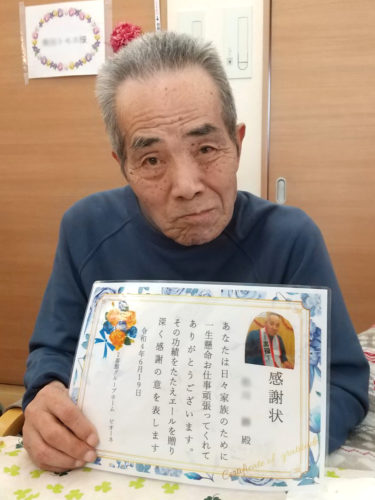 感謝状
殿
あなたは日々家族のために
一生懸命お仕事頑張ってくれて
ありがとうございます。
その功績をたたえエールを贈り
深く感謝の意を表します
令和4年6月19日
グループホーム
Certificate of Gratitude